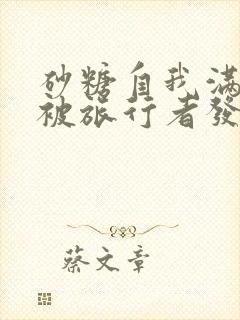 砂糖自我滿
被旅行者發
蔡文章